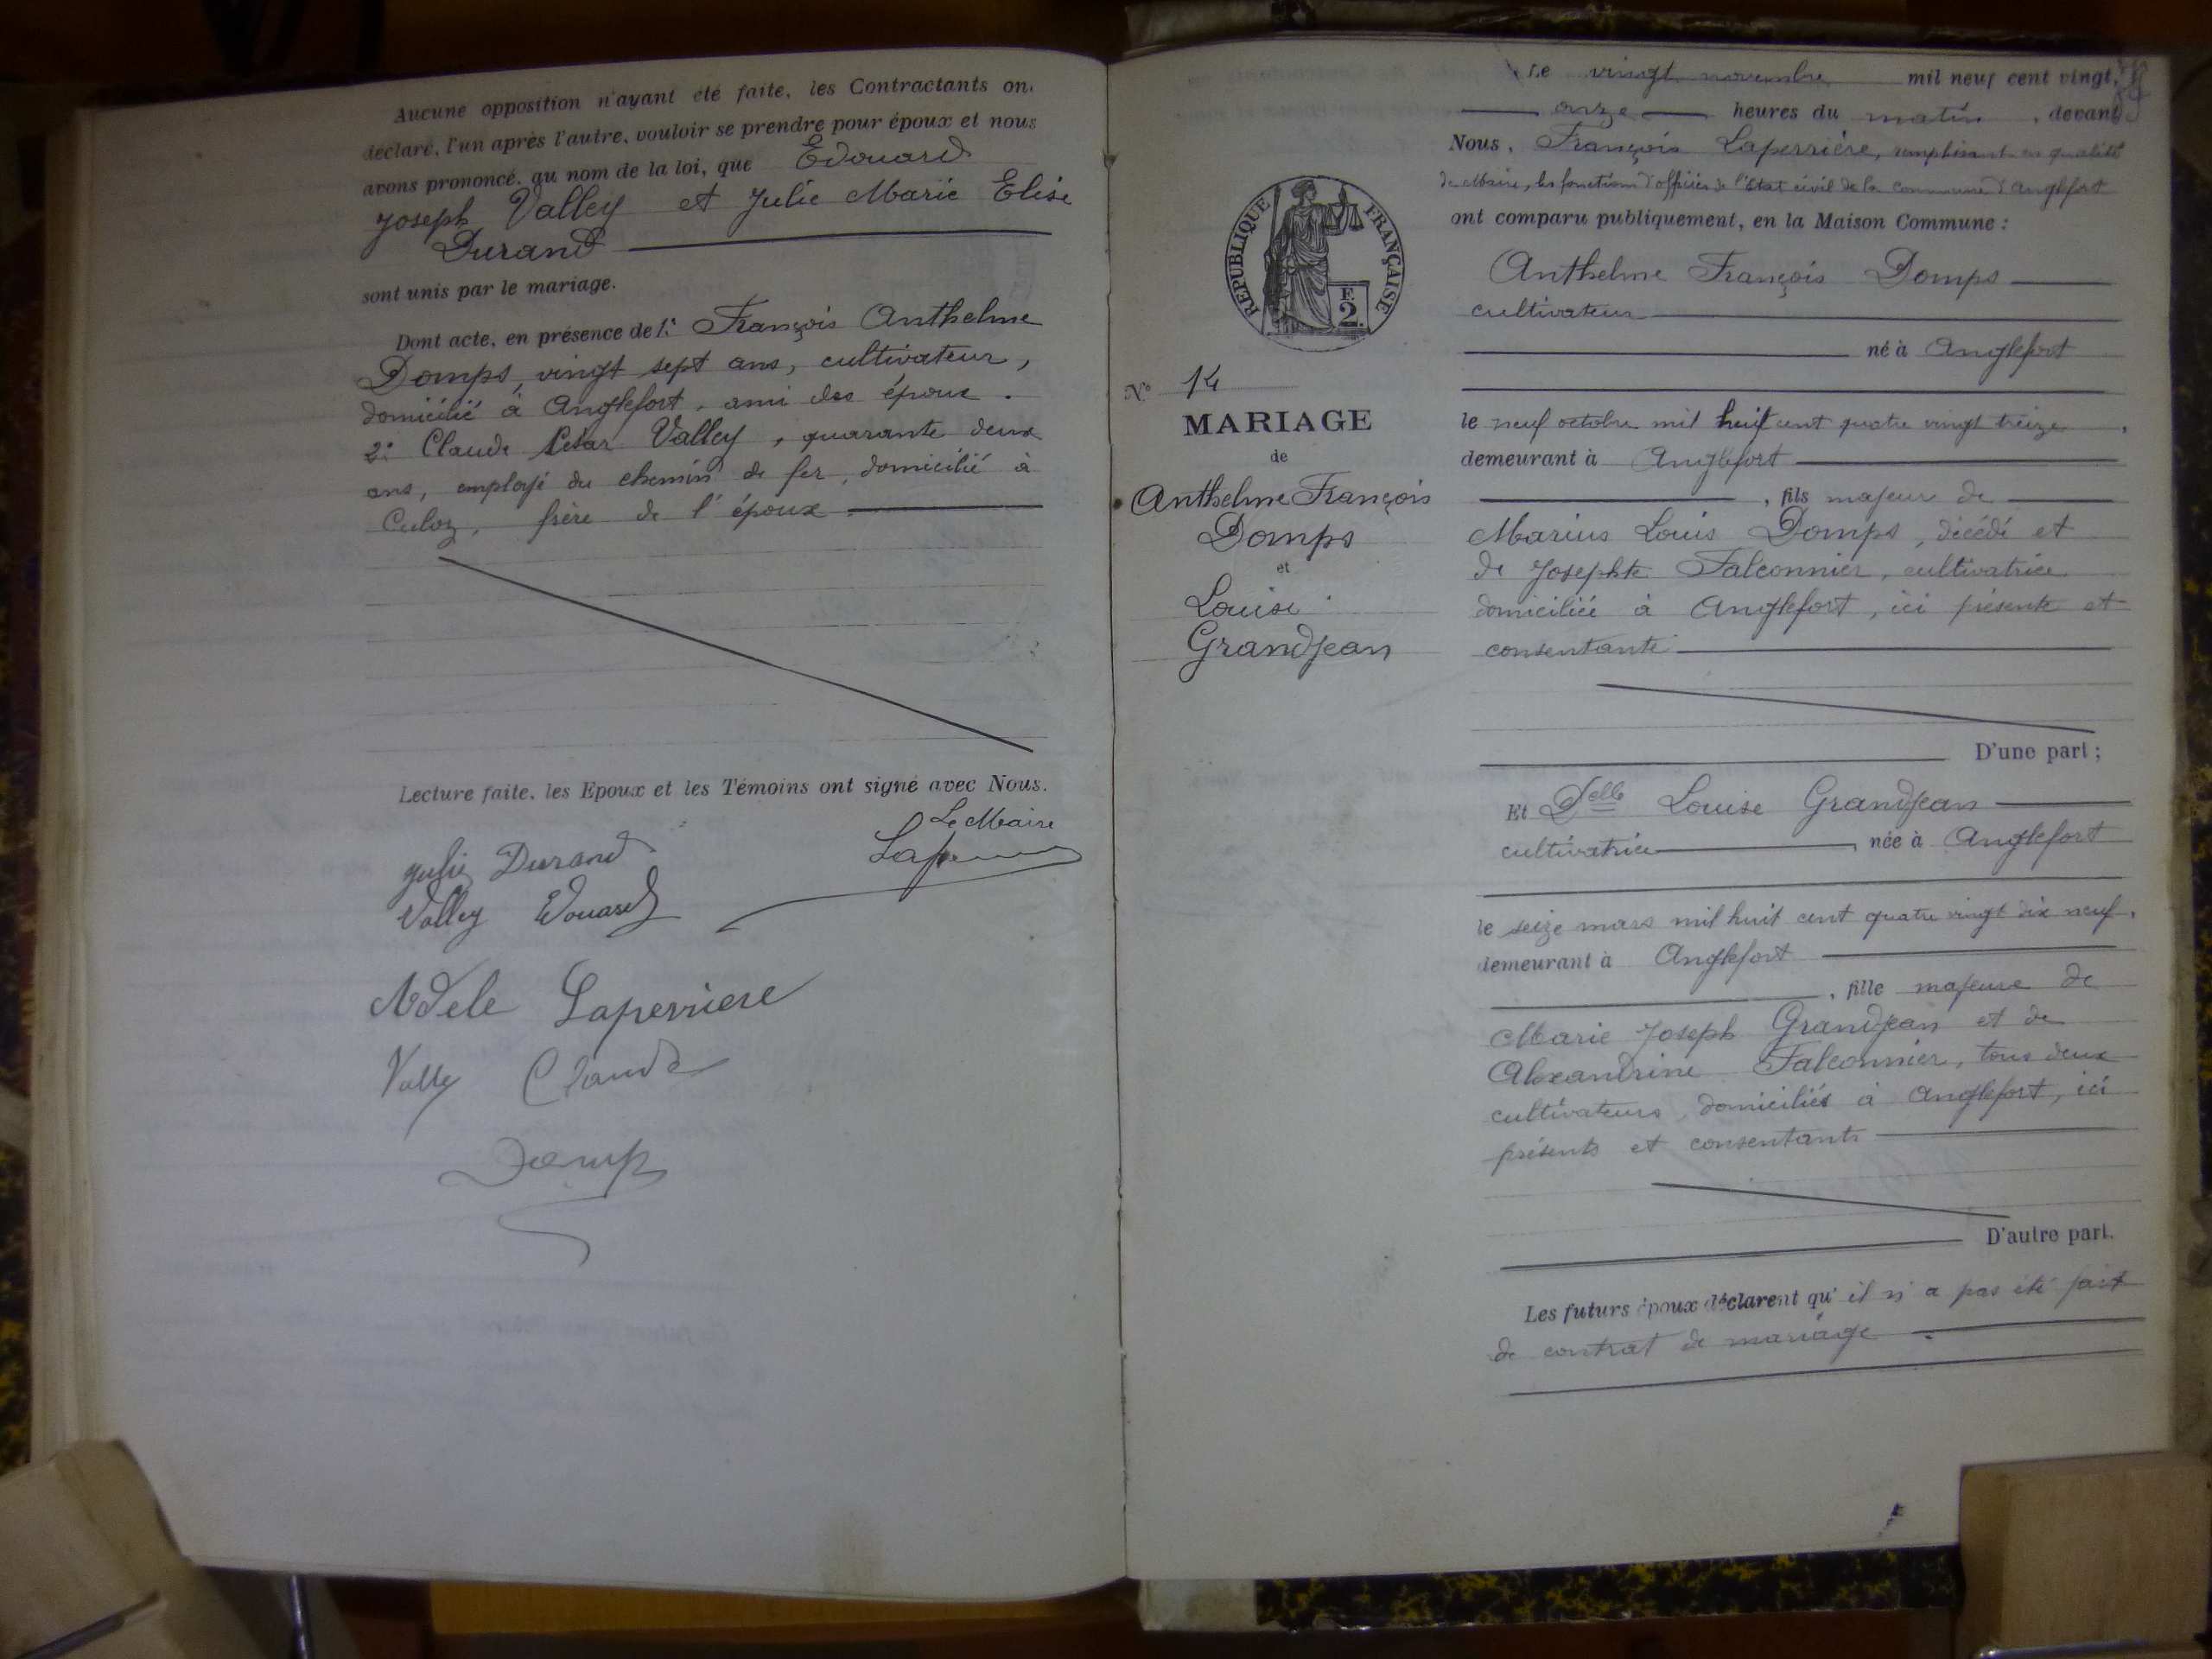 Aucune opposition n'ayant été faite, les Contractants on
déclaré, l'un après l'autre, vouloir se prendre pour époux et nous
avons prononcé, au nom de la loi, que Edouard
Joseph Valley et Julie Marie Elise
Durand
sont unis par le mariage.
Dont acte, en présence de 1° François Anthelme
Domps, vingt sept ans, cultivateur,
domicilié à Anglefort, ami des époux.
2° Claude César Valley, quarante deux
ans, employé du chemin de fer, domicilié à
Culoz, frère de l'époux
Lecture faite, les Epoux et les Témoins ont signé avec Nous.
Le Maire
Julie Durand
Valley Edouard
Adele Laperriere
Valley Claude
Domps
Le vingt novembre mil neuf cent vingt,
onze heures du matin, devant
Nous, François Laperrière, remplissant en qualité
de Maire, les fonctions d'officier de l'Etat civil de la commune d'Anglefort
ont comparu publiquement, en la Maison Commune :
REPUBLIQUE FRANÇAISE
F.
2.
Anthelme François Domps
cultivateur
né à Anglefort
N° 14
MARIAGE
de
Anthelme François
Domps
et
Louise
Grandjean
le neuf octobre mil huit cent quatre vingt treize,
demeurant à Anglefort
, fils majeur de
Marius Louis Domps, décédé et
de Josephte Falconnier, cultivatrice
domiciliée à Anglefort, ici présente et
consentante
D'une part ;
Et Delle Louise Grandjean
cultivatrice, née à Anglefort
le seize mars mil huit cent quatre vingt dix neuf,
demeurant à Anglefort
, fille majeure de
Marie Joseph Grandjean et de
Alexandrine Falconnier, tous deux
cultivateurs, domiciliés à Anglefort, ici
présents et consentants
D'autre part.
Les futurs époux déclarent qu'il n'a pas été fait
de contrat de mariage.